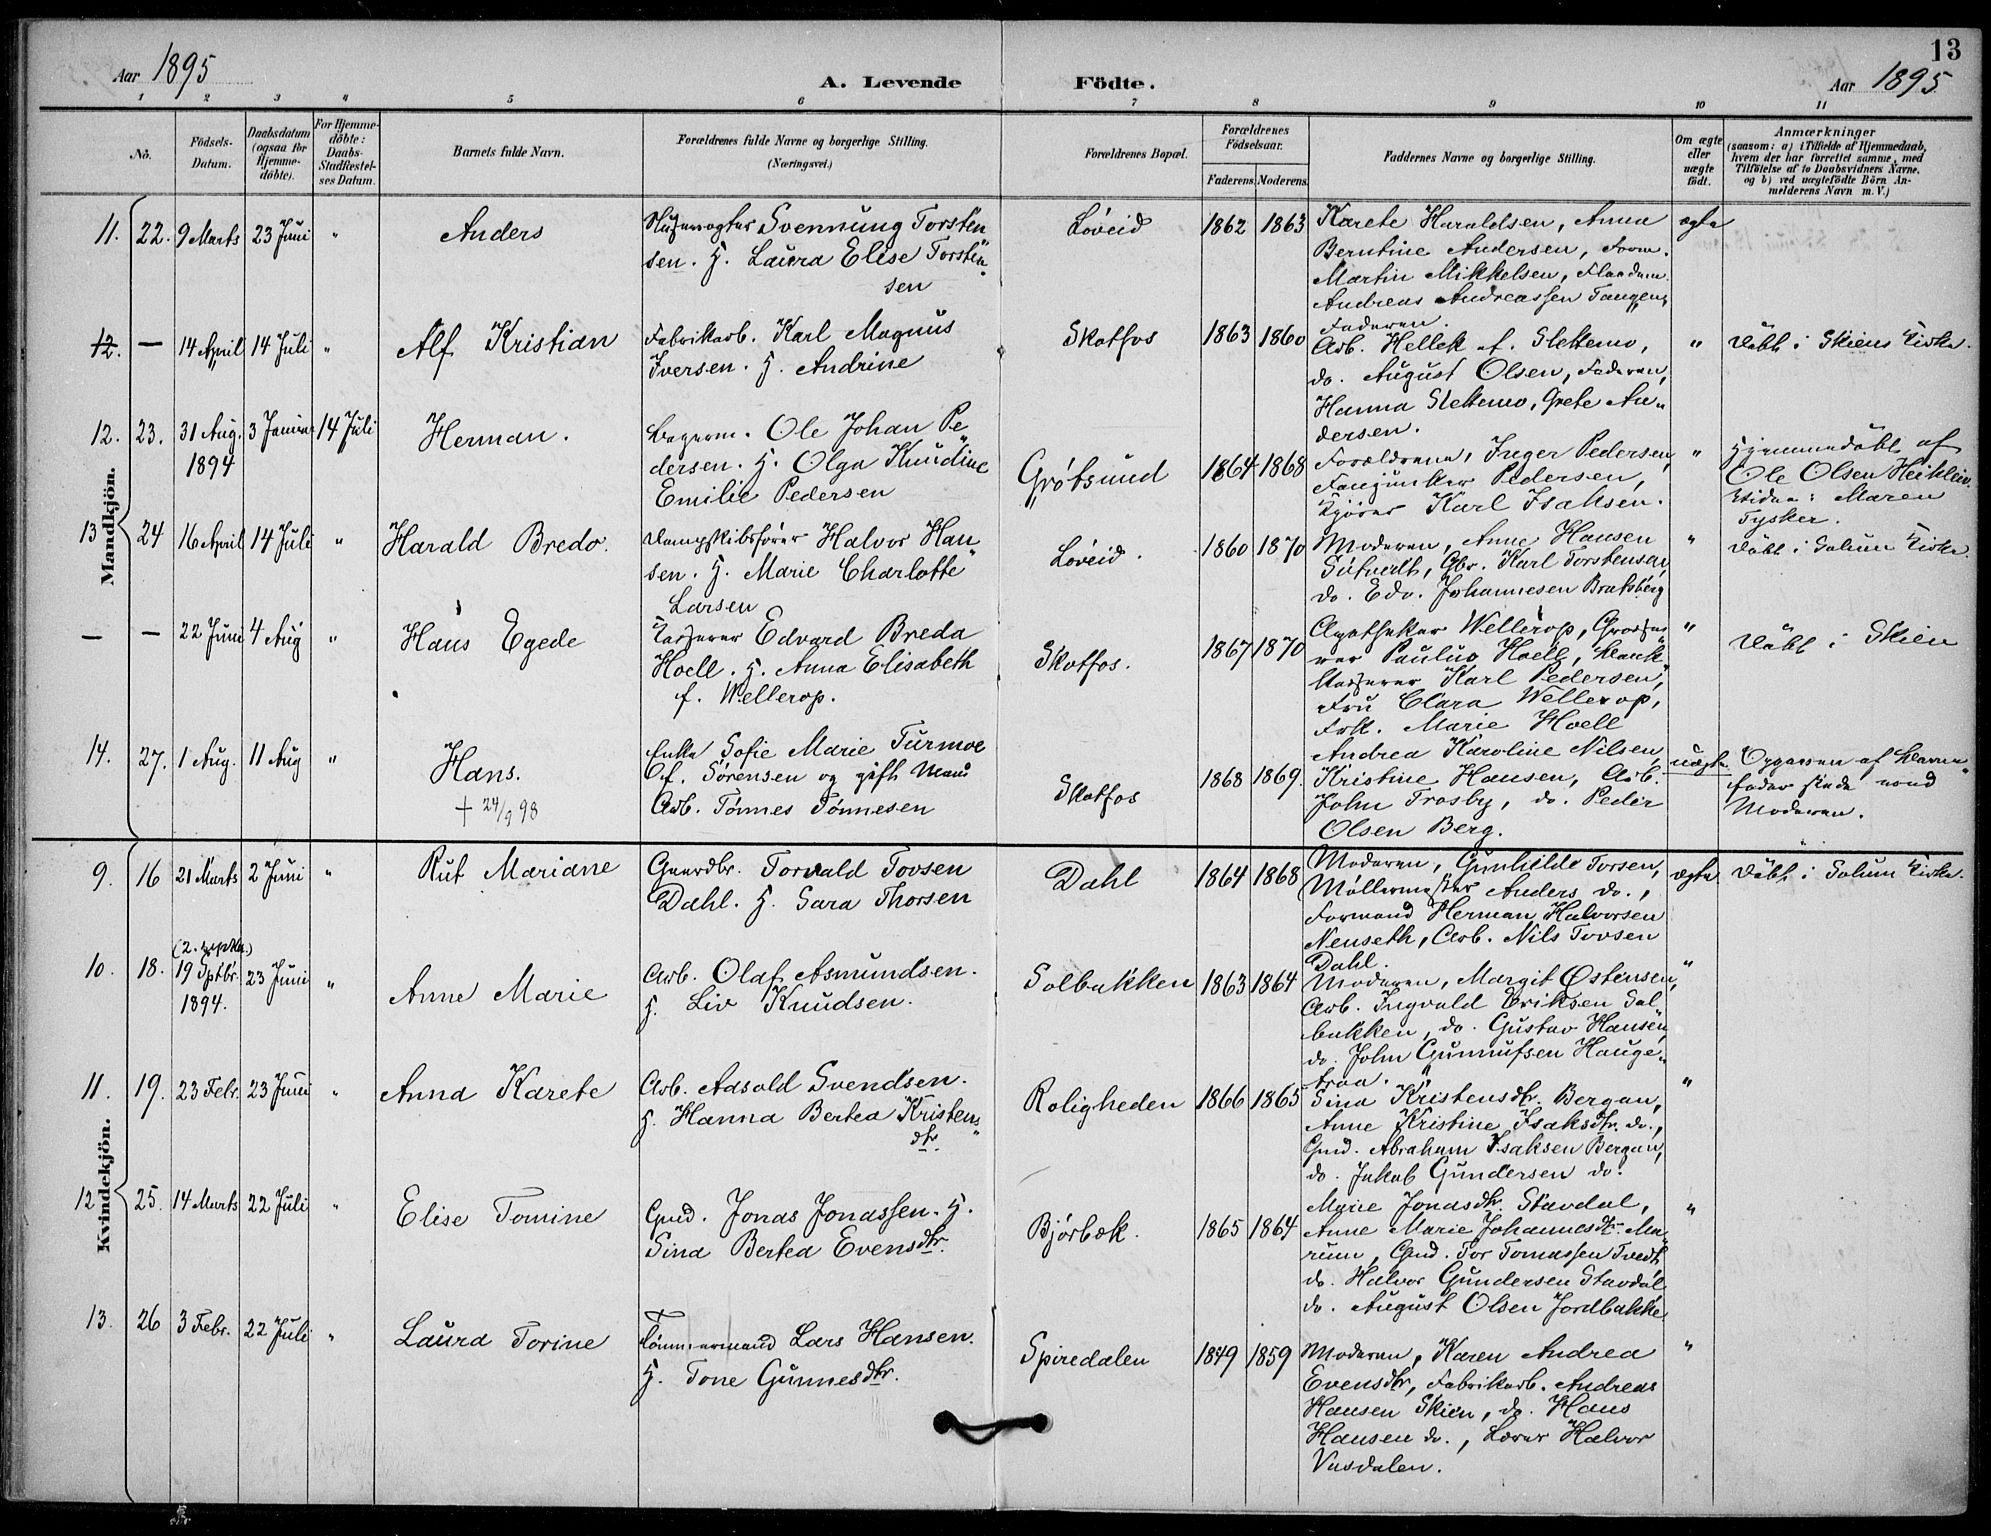 13
Aar 1895
A. Levende
Födte.
Aar 1895
1 2 3 4 5 6 7 8 9 10 11
No.
Födsels-
Datum.
Daabsdatum
(ogsaa for
Hjemme-
döbte).
For Hjemme-
döbte:
Daabs-
Stadfæstel-
ses Datum.
Barnets fulde Navn.
Forældrenes fulde Navne og borgerlige Stilling.
(Næringsvei.)
Forældrenes Bopæl.
Forældrenes
Födselsaar.
Faderens. Moderens.
Faddernes Navne og borgerlige Stilling.
Om ægte
eller
uægte
født.
Anmærkninger
(saasom: a) i Tilfælde af Hjemmedaab,
hvem der har forrettet samme, med
Tilföielse af to Daabsvidners Navne,
og b) ved uægtefödte Börn An-
melderens Navn m. V.)
Mandkjön.
11. 22. 9 Marts 23 Juni "
Anders
Svennung Torsten
sen. H. Laura Elise Torsten
sen
Løveid
1862 1863
Karete Haraldsen, Anna
Berntine Andersen, Form.
Martin Mikkelsen,
Andreas Andreassen Tangen,
Faderen.
ægte
12. — 14 April 14 Juli "
Alf Kristian
Fabrikarb. Karl Magnus
Iversen. H. Andrine
Skotfos
1863 1860
Arb. Hellek . Slettemo,
do. August Olsen, Faderen,
Hanna Slettemo, Grete An„
dersen.
"
Döbt i Skiens Kirke.
12. 23. 31 Aug. 3 Januar 14 Juli
1894
Herman.
Ole Johan Pe„
dersen. H. Olga Knudine
Emilie Pedersen
Grøtsund
1864 1868
Forældrene, Inger Pedersen,
Pedersen,
Karl Isaksen.
"
Hjemmedöbt af
Ole Olsen
Vidne: Maren
Tysker.
13 24 16 April 14 Juli "
Harald Bredo.
Dampskibsfører Halvor Han„
sen. H. Marie Charlotte
Larsen
Løveid.
1860 1870
Moderen, Anne Hansen
Karl Torstensen,
do. Edv. Johannesen Bratsberg
"
Döbt i Solum Kirke.
— — 22 Juni 4 Aug "
Hans Egede
Kasserer Edvard Breda
Hoell. H. Anna Elisabeth
f. Wellerop.
Skotfos.
1867 1870
Apotheker Wellerop, Grosse
rer Paulus Hoell, Bank„
kasserer Karl Pedersen,
Fru Clara Wellerop,
Frk. Marie Hoell
"
Döbt i Skien
14. 27. 1 Aug. 11 Aug "
Hans.
† 24/9 98
Enke Sofie Marie Turmoe
f. Sørensen og gift Mand
Arb. Tønnes Tønnesen
Skotfos
1868 1869.
Andrea Karoline Nilsen,
Kristine Hansen, Arb.
John Trosby, do. Peder
Olsen Berg.
uægte
Opgaven af Barne„
fader skede ved
Moderen.
Kvindekjön.
9. 16 21 Marts 2 Juni "
Rut Mariane
Gaardbr. Torvald Tovsen
Dahl. H. Sara Thorsen
Dahl
1864 1868
Moderen, Gunhilde Torsen,
Møllermester Anders do.,
Formand Herman Halvorsen
Nenseth, Arb. Nils Tovsen
Dahl.
ægte
Döbt i Solum Kirke.
10. 18. 19 Sptbr. 23 Juni "
1894.
Anne Marie
Arb. Olaf Asmundsen.
H. Liv Knudsen.
Solbakken
1863 1864
Moderen, Margit Østensen,
Arb. Ingvald Eriksen Sol
bakken, do. Gustav Hansen,
do. John Gunnufsen Hauge„
traa.
"
11. 19. 23 Febr. 23 Juni "
Anna Karete
Arb. Aasold Svendsen.
H. Hanna Bertea Kristens„
dtr.
Roligheden
1866 1865
Sina Kristensdtr. Bergan,
Anne Kristine Isaksdtr. do.,
Gmd. Abraham Isaksen Bergan,
do. Jakob Gundersen do.
"
12 25. 14 Marts 22 Juli "
Elise Tomine
Gmd. Jonas Jonassen. H.
Sina Bertea Evensdtr.
Bjørbæk.
1865 1864
Marie Jonasdtr. Stavdal,
Anne Marie Johannesdtr. Ma„
rum, Gmd. Tor Tomassen Tvedt,
do. Halvor Gundersen Stavdal
do. August Olsen Jordbakke
"
13. 26 3 Febr. 22 Juli "
Laura Torine
Tømmermand Lars Hansen.
H. Tone Gunnesdtr.
Spiredalen
1849 1859
Moderen, Karen Andrea
Evensdtr, Fabrikarb. Andreas
Hansen Skien, do. Hans
Hansen do., Lærer Halvor
Vasdalen.
"